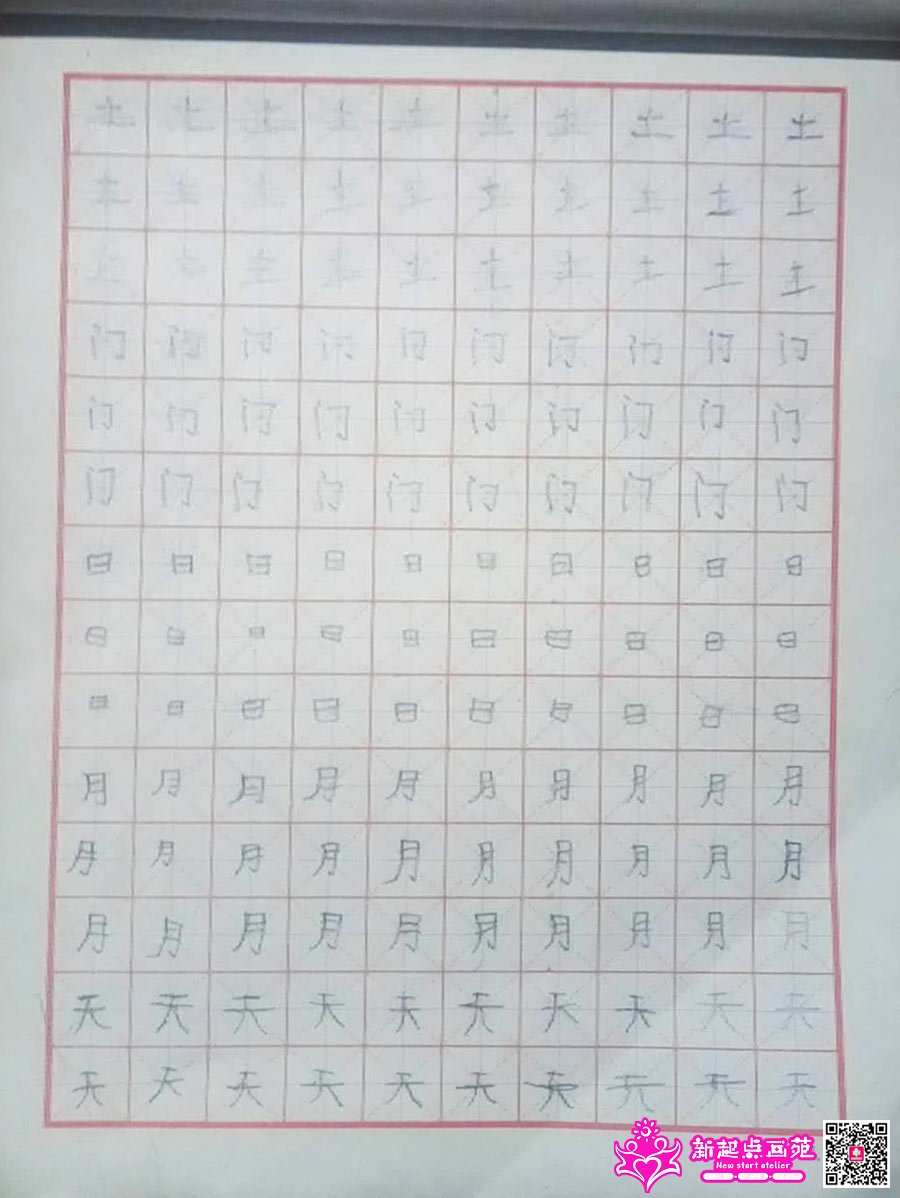 土 土 土 土 土 土 土 土 土 土
土 土 土 土 土 土 土 土 土 土
土 土 土 土 土 土 土 土 土 土
门 门 门 门 门 门 门 门 门 门
门 门 门 门 门 门 门 门 门 门
门 门 门 门 门 门 门 门 门 门
日 日 日 日 日 日 日 日 日 日
日 日 日 日 日 日 日 日 日 日
日 日 日 日 日 日 日 日 日 日
月 月 月 月 月 月 月 月 月 月
月 月 月 月 月 月 月 月 月 月
月 月 月 月 月 月 月 月 月 月
天 天 天 天 天 天 天 天 天 天
天 天 天 天 天 天 天 天 天 天
新起点画苑
New start atelier